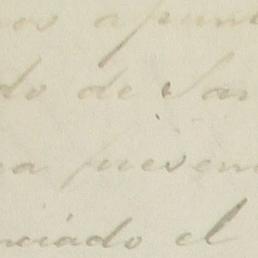 nos apun
do de San
na presen
nciado el